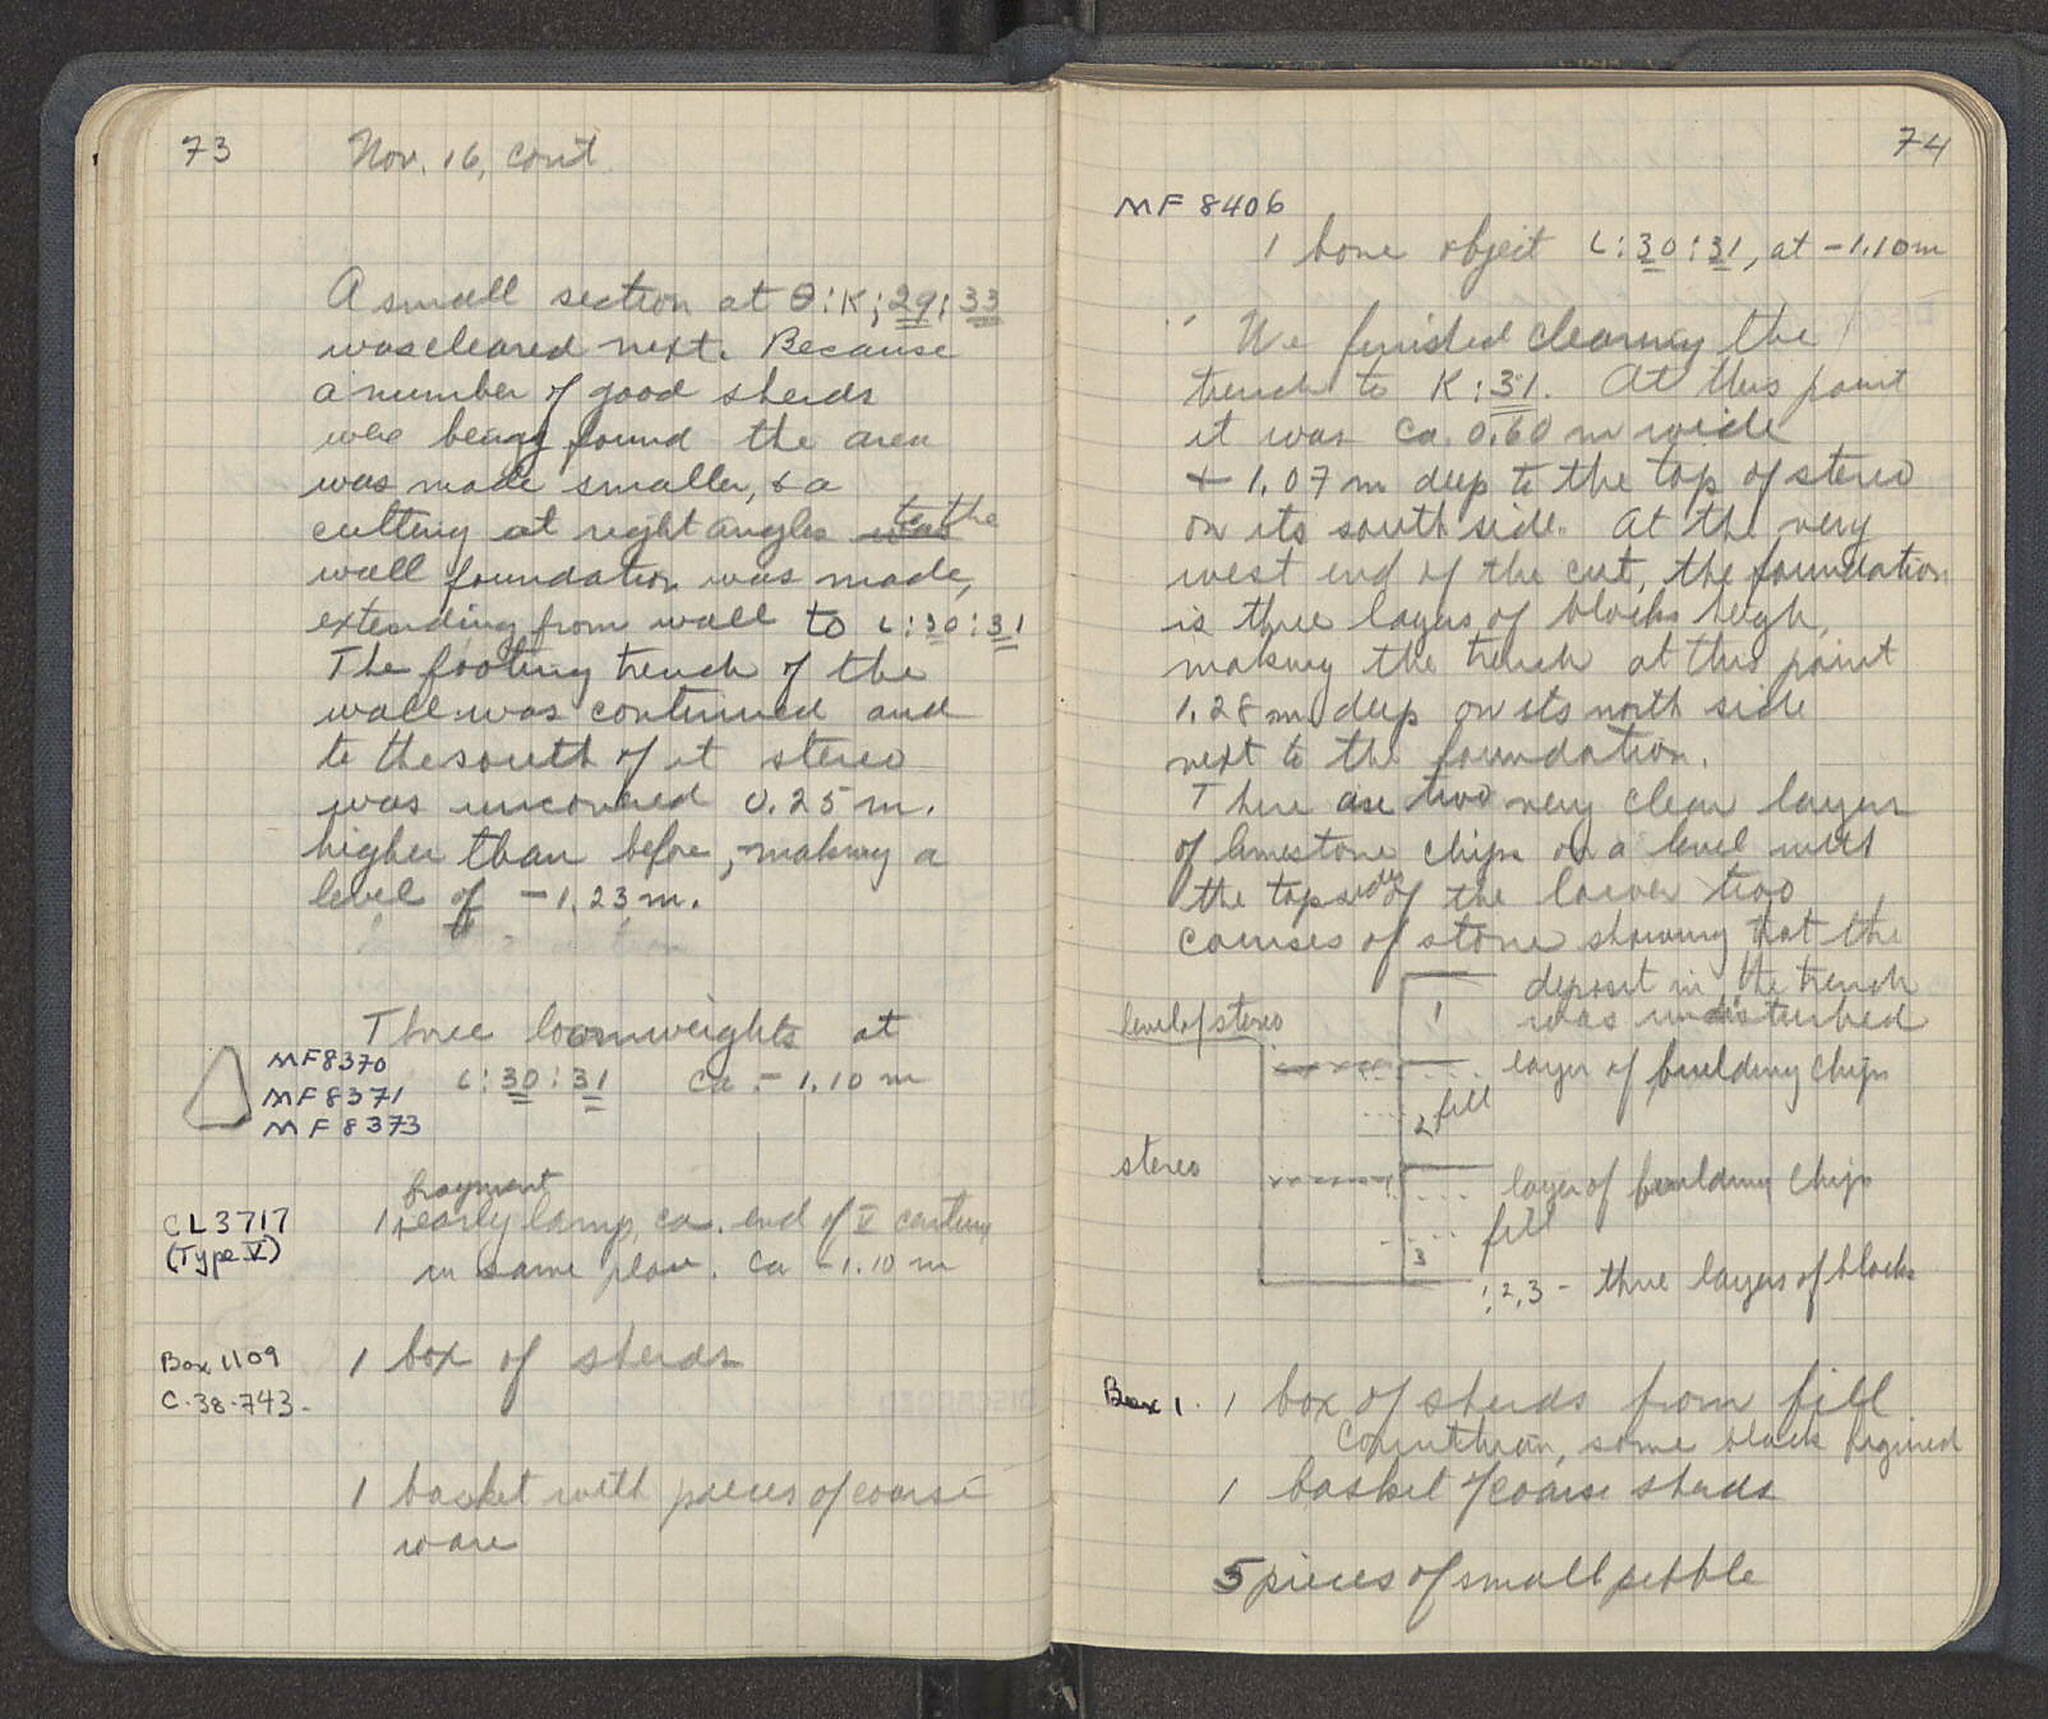 73
Nov. 16, cont.
A small section at Θ:K; 29:33
was cleared next. Because
a number of good sherds
were being found the area
was made smaller, & a
cutting at right angles was to the
wall foundation was made,
extending from wall to L:30:31
The footing trench of the
wall was continued and
to the south of it stereo
was uncovered 0.25 m.
higher than before, making a
level of -1.23 m.
Three loomweights at
MF8370
L:30:31 ca. -1.10 m
MF8371
MF8373
fragment
CL3717
1 early lamp, ca. end of V century
(Type V)
in same place. Ca -1.10 m
Box 1109
1 box of sherds
C-38-743-
1 basket with pieces of coarse
ware
74
MF 8406
1 bone object L:30:31, at -1.10m
We finished clearing the
trench to K:31. At this point
it was ca. 0.60 m wide
+ 1.07 m deep to the top of stereo
on its south side. At the very
west end of the cut, the foundation
is three layers of blocks heigh,
making the trench at this point
1.28 m deep on its north side
next to the foundation.
There are two very clear layers
of limestone chips on a level with
the top sides of the lower two
courses of stone showing that the
deposit in the trench
was undisturbed
level of stereo
1
layer of building chips
2 fill
stereo
layer of building chips
fill
3
1,2,3 - three layers of blocks
Box 1. 1 box of sherds from fill
Corinthian, some black figured
1 basket of coarse sherds
5 pieces of small pebble